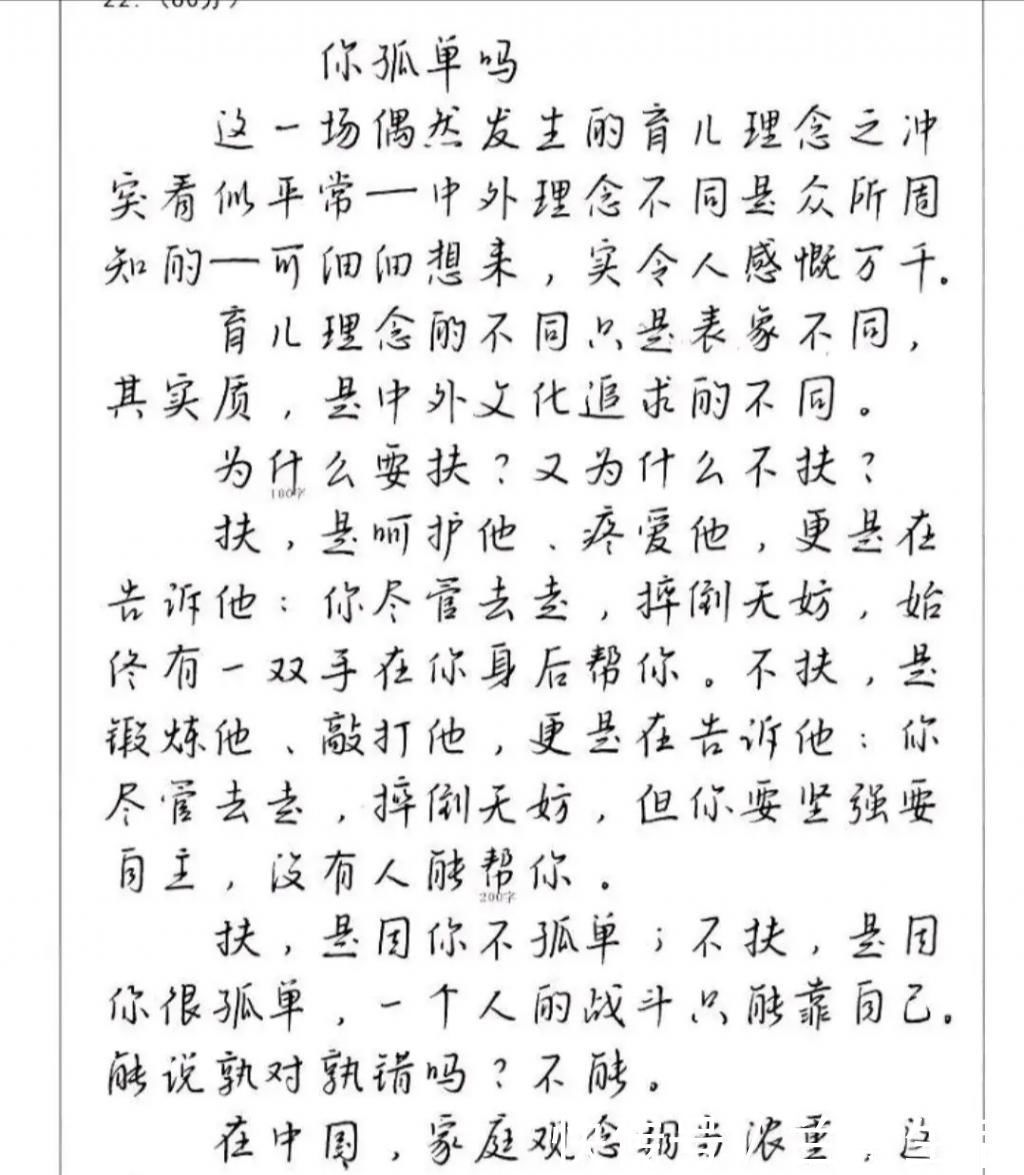 22. (60分)
你孤单吗
这一场偶然发生的育儿理念之冲
突看似平常——中外理念不同是众所周
知的——可细细想来，实令人感慨万千。
育儿理念的不同只是表象不同，
其实质，是中外文化追求的不同。
为什么要扶？又为什么不扶？
100字
扶，是呵护他、疼爱他，更是在
告诉他：你尽管去走，摔倒无妨，始
终有一双手在你身后帮你。不扶，是
锻炼他、敲打他，更是在告诉他：你
尽管去走，摔倒无妨，但你要坚强要
自主，没有人能帮你。
200字
扶，是因你不孤单；不扶，是因
你很孤单，一个人的战斗只能靠自己。
能说孰对孰错吗？不能。
在中国，家庭观念相当浓重，这